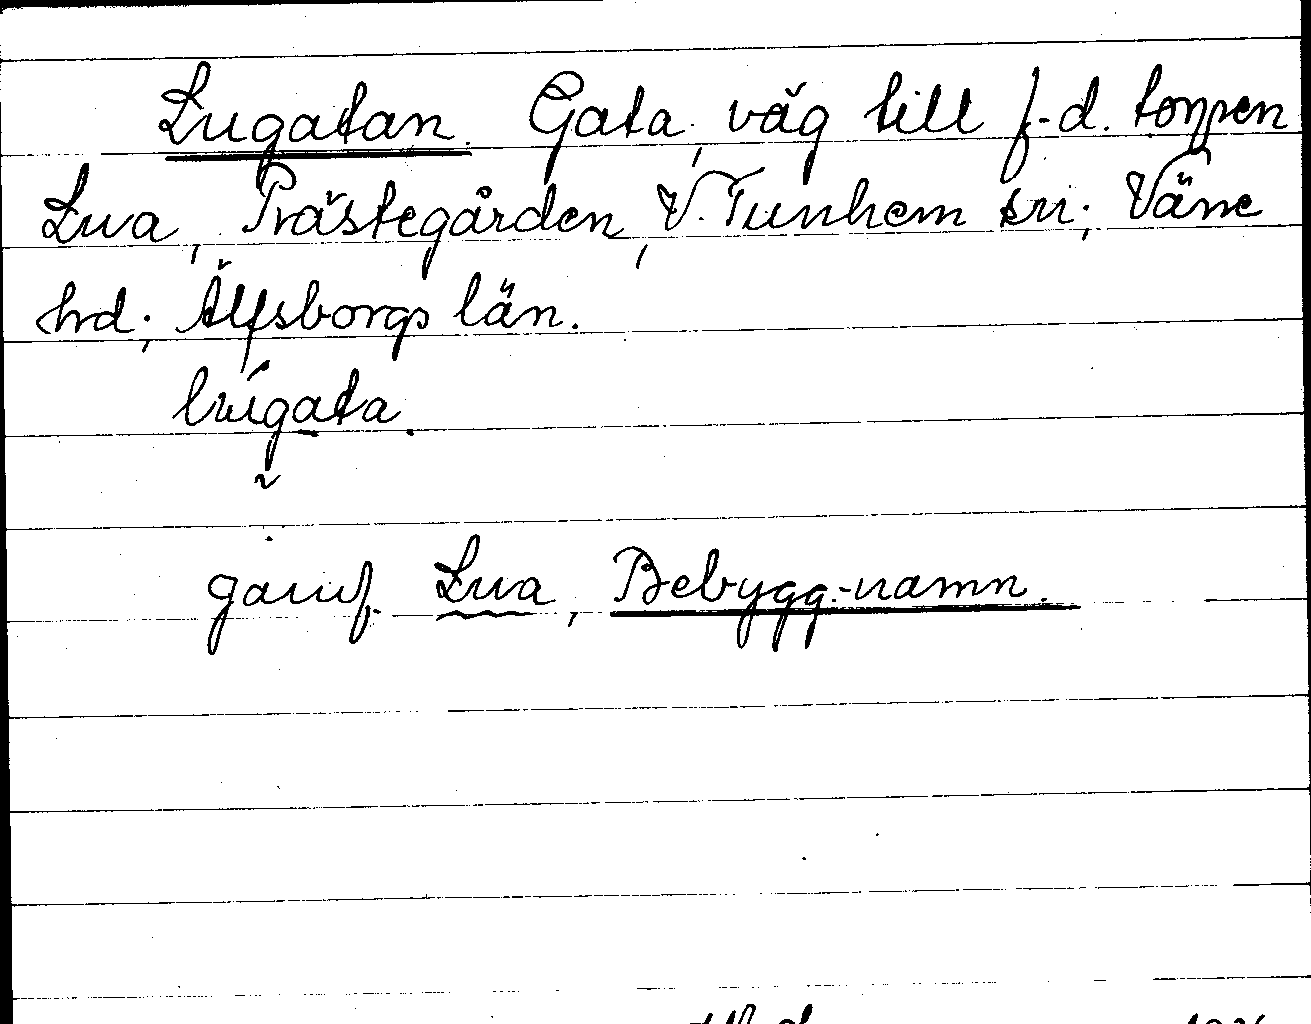 Lugatan. Gata, väg till f.d. torpen
Lua, Prästegården, V. Tunhem sn; Väne
hrd; Älfsborgs län.
lúgata.
jamf. Lua, Bebygg.-namn.